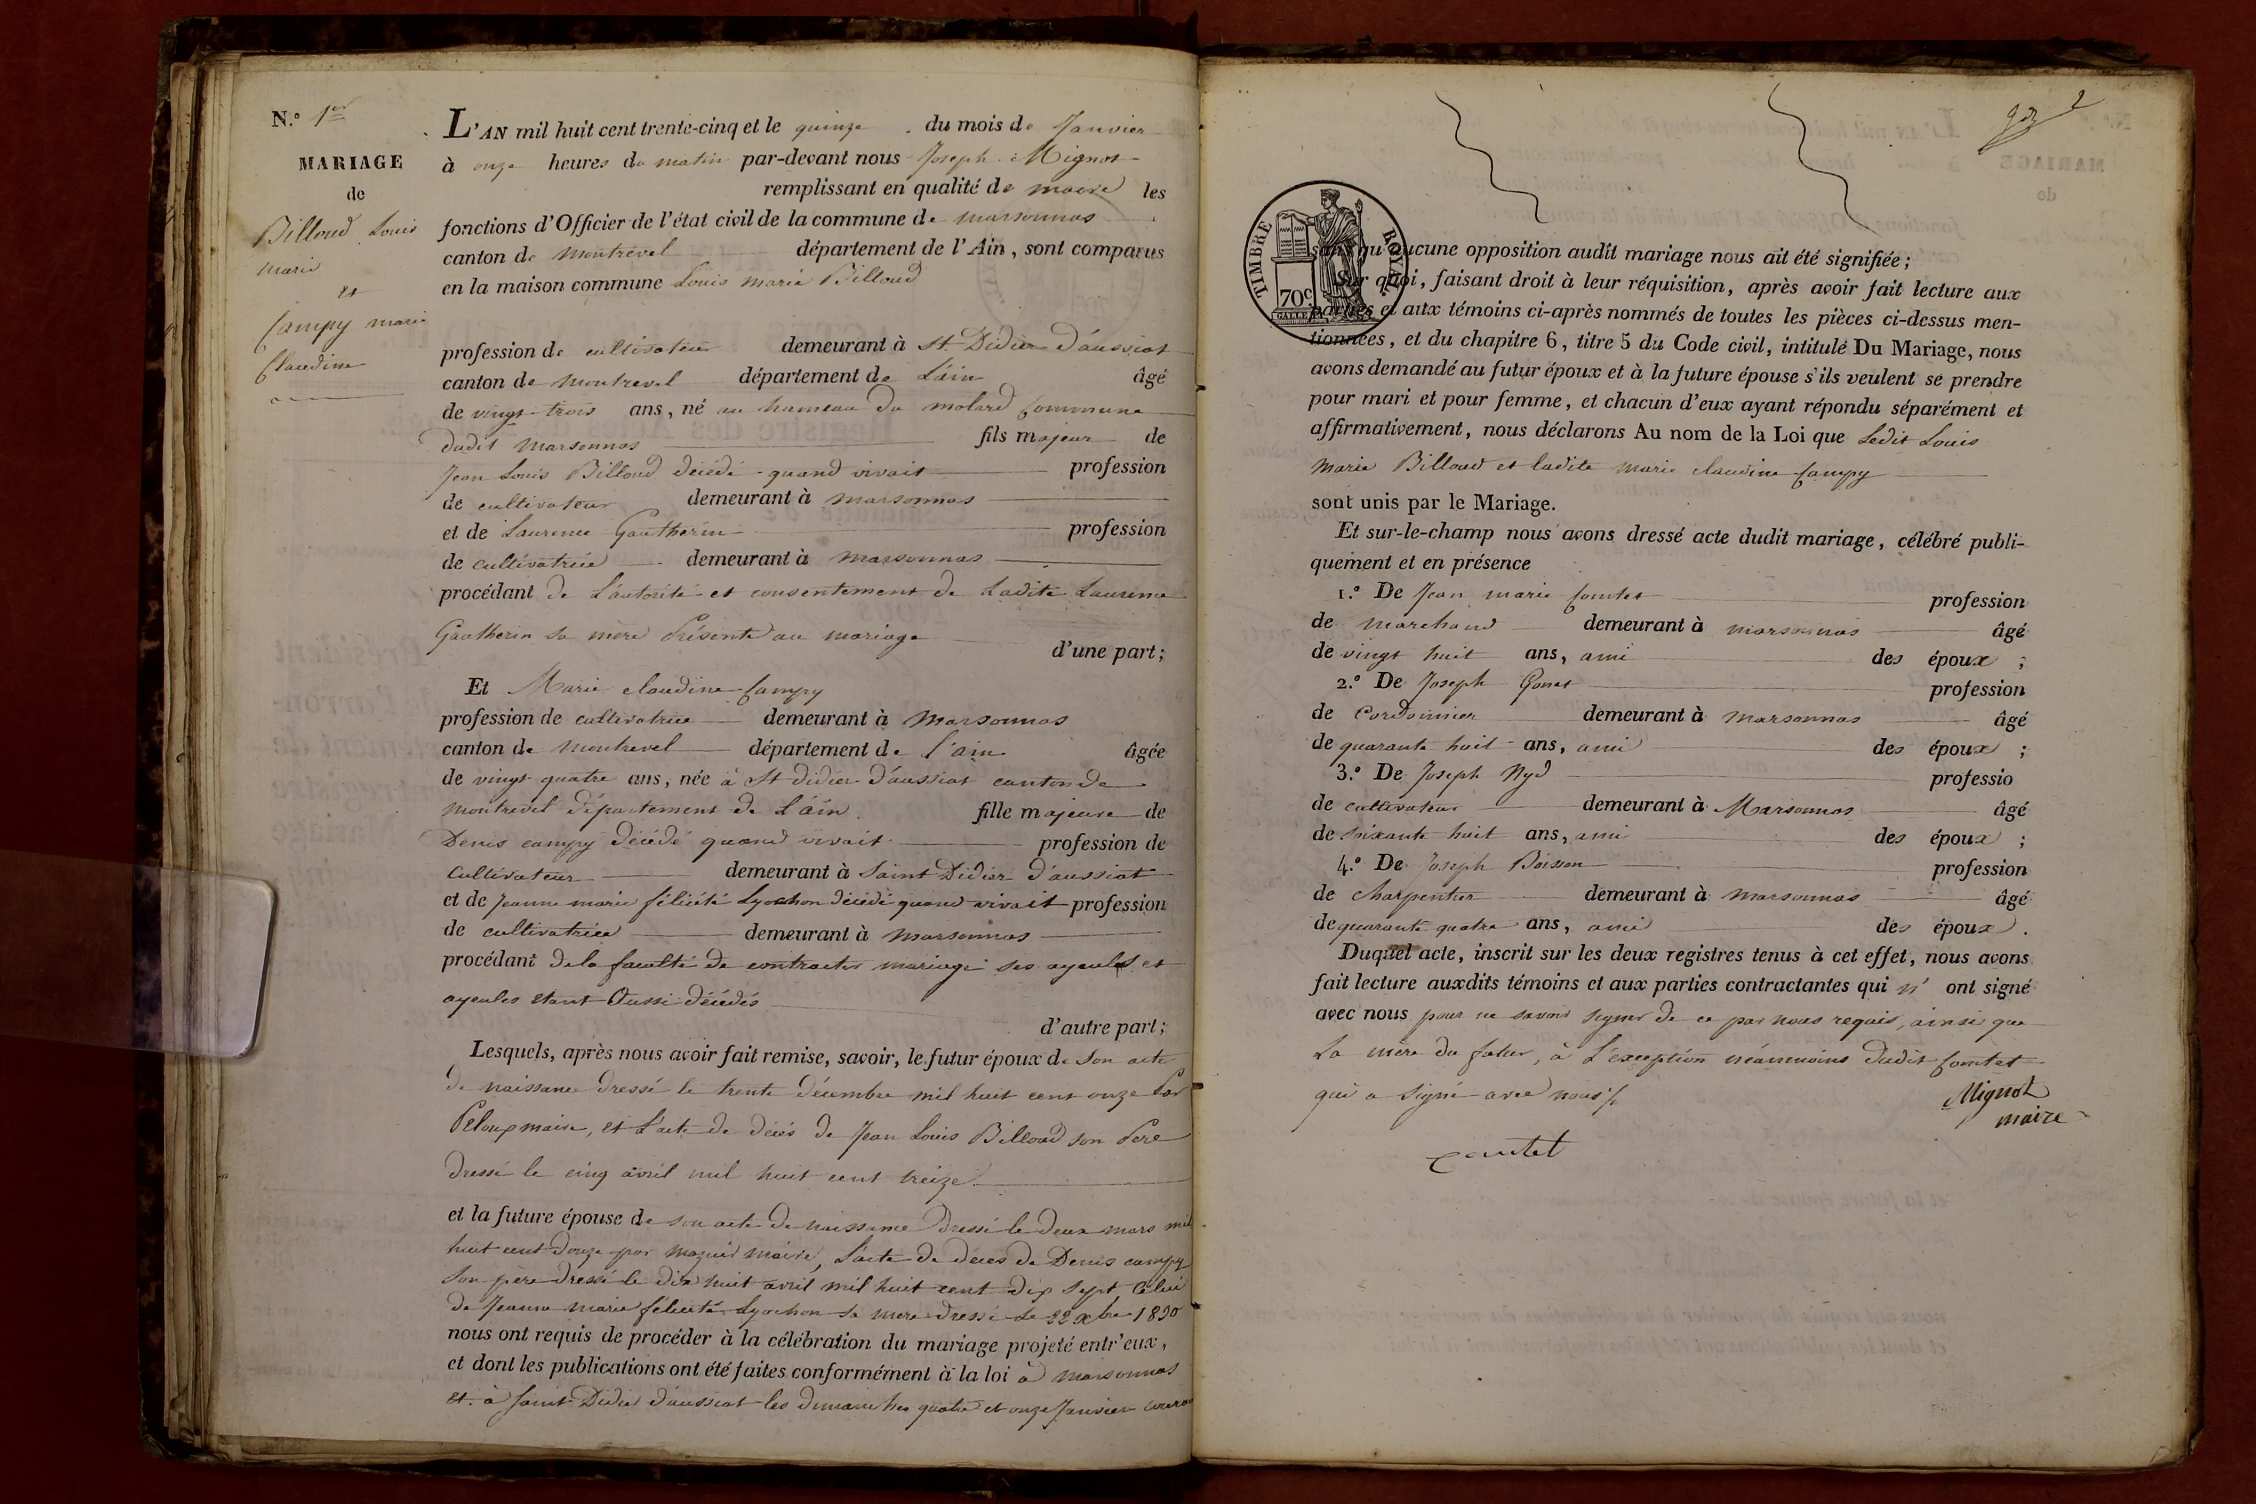 N.° 1er
MARIAGE
de
Billoud Louis
marie
et
Campy marie
Claudine
L'AN mil huit cent trente-cinq et le quinze du mois de Janvier
à onze heures du matin par-devant nous Joseph Mignot
remplissant en qualité de maire les
fonctions d'Officier de l'état civil de la commune de marsonnas
canton de montrevel département de l'Ain, sont comparus
en la maison commune Louis marie Billoud
profession de cultivateur demeurant à St Didier D'aussiat
canton de montrevel département de L'ain âgé
de vingt-trois ans, né au hameau du molard Commune
dudit marsonnas fils majeur de
Jean Louis Billoud décédé quand vivait profession
de cultivateur demeurant à marsonnas
et de Laurence Gautherin profession
de cultivatrice demeurant à marsonnas
procédant de L'autorité et consentement de Ladite Laurence
Gautherin sa mère Présente au mariage
d'une part;
Et Marie claudine Campy
profession de cultivatrice demeurant à marsonnas
canton de montrevel département de l'ain âgée
de vingt quatre ans, née à St didier d'aussiat canton de
montrevel département de L'ain fille majeure de
Denis campy décédé quand vivait profession de
cultivateur demeurant à Saint Didier d'aussiat
et de Jeanne marie félicité Lyochon décédé quand vivait profession
de cultivatrice demeurant à marsonnas
procédant de la faculté de contracter mariage ses ayeuls et
ayeules etant Aussi décédés
d'autre part;
Lesquels, après nous avoir fait remise, savoir, le futur époux de Son acte
de naissance dressé le trente décembre mil huit cent onze Par
Peloux maire, et L'acte de décès de Jean Louis Billoud son Pere
dressé le cinq avril mil huit cent treize
et la future épouse de son acte de naissance dressé le deux mars mil
huit cent douze par maire, L'acte de décès de Denis campy
Son père dressé le dix huit avril mil huit cent dix sept Celui
de Jeanne marie félicité Lyochon sa mere dressé le 22 xbre 1830
nous ont requis de procéder à la célébration du mariage projeté entr'eux,
et dont les publications ont été faites conformément à la loi à marsonnas
et à saint Didier d'aussiat les dimanches quatre et onze Janvier courant
2
TIMBRE ROYAL
70c
sans qu'aucune opposition audit mariage nous ait été signifiée;
Sur quoi, faisant droit à leur réquisition, après avoir fait lecture aux
parties et aux témoins ci-après nommés de toutes les pièces ci-dessus men-
tionnées, et du chapitre 6, titre 5 du Code civil, intitulé Du Mariage, nous
avons demandé au futur époux et à la future épouse s'ils veulent se prendre
pour mari et pour femme, et chacun d'eux ayant répondu séparément et
affirmativement, nous déclarons Au nom de la Loi que Ledit Louis
Marie Billoud et ladite marie claudine Campy
sont unis par le Mariage.
Et sur-le-champ nous avons dressé acte dudit mariage, célébré publi-
quement et en présence
1.° De Jean marie Comtet profession
de marchand demeurant à marsonnas âgé
de vingt huit ans, ami des époux ;
2.° De Joseph Gonet profession
de Cordonnier demeurant à marsonnas âgé
de quarante huit ans, ami des époux ;
3.° De Joseph Nyd professio
de cultivateur demeurant à Marsonnas âgé
de soixante huit ans, ami des époux ;
4.° De Joseph Boisson profession
de charpentier demeurant à marsonnas âgé
de quarante quatre ans, ami des époux .
Duquel acte, inscrit sur les deux registres tenus à cet effet, nous avons
fait lecture auxdits témoins et aux parties contractantes qui n' ont signé
avec nous pour ne savoir signer de ce par nous requis, ainsi que
La mère du futur, à L'exception néanmoins dudit Comtet
qui a signé avec nous
Mignot
maire
Comtet